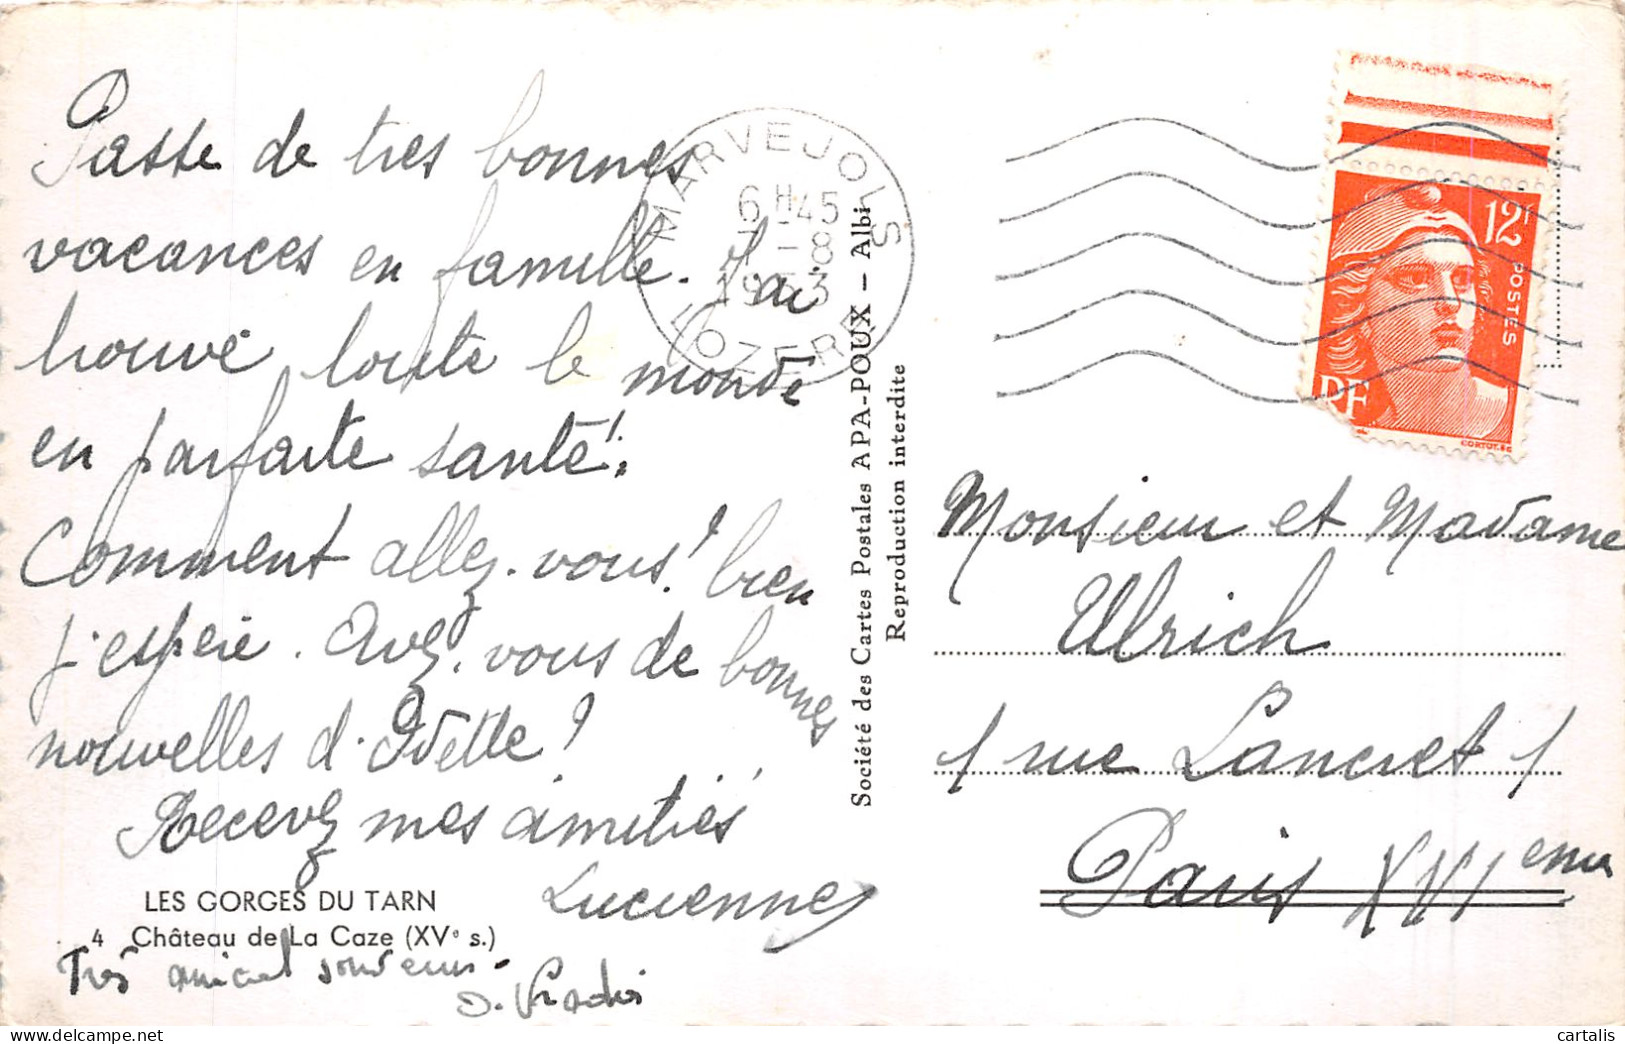 Passe de tres bonnes
vacances en famille. J'ai
trouvé toute le monde
en parfaite santé!
Comment allez-vous? bien
j'espère. Avez-vous de bonnes
nouvelles d'Odette?
Recevez mes amitiés
Lucienne
LES GORGES DU TARN
4 Château de La Caze (XVe s.)
Très amical souvenir.
MARVEJOLS
6H45
-8
1953
LOZERE
Société des Cartes Postales APA-POUX – Albi
Reproduction interdite
12f
POSTES
RF
CORTOT.
Monsieur et Madame
Ulrich
1 rue Lancret 1
Paris XVIème
cartalis